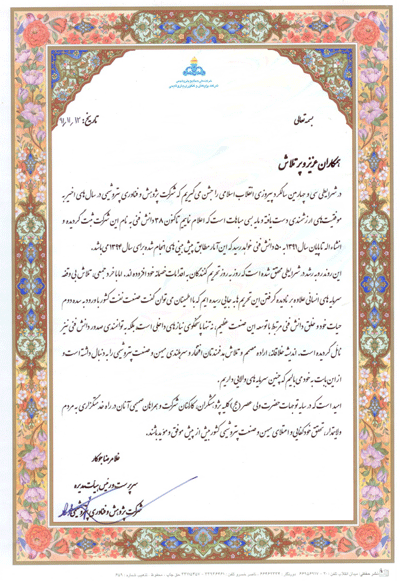 بسمه تعالی
تاریخ: ۹۱,۱۱,۱۲
همکاران عزیز و پرتلاش
در شرایطی سی و چهارمین سالگرد پیروزی انقلاب اسلامی را جشن می گیریم که شرکت پژوهش و فناوری پتروشیمی در سال های اخیر به
موفقیت های ارزشمندی دست یافته و مایه بسی مباهات است که اعلام نماییم تاکنون ۳۸ دانش فنی به نام این شرکت ثبت گردیده و
انشاءاله تا پایان سال ۱۳۹۱ به ۵۰ دانش فنی خواهد رسید که این آمار مطابق پیش بینی های انجام شده برای سال ۱۳۹۴ می باشد.
این روند رو به رشد در شرایطی محقق شده است که روز به روز تحریم کنندگان به اقدامات خصمانه خود افزوده اند. اما خرد جمعی، تلاش بی وقفه
سرمایه های انسانی علاوه بر نادیده گرفتن این تحریم ها، به جایی رسیده ایم که با اطمینان می توان گفت صنعت نفت کشور با ورود به سده دوم
حیات خود و خلق دانش فنی مرتبط با توسعه این صنعت عظیم، نه تنها پاسخگوی نیازهای داخلی است بلکه به توانمندی صدور دانش فنی نیز
نائل گردیده است. اندیشه خلاقانه، اراده مصمم و تلاش هدفمندتان افتخار و سربلندی میهن و صنعت پتروشیمی را به دنبال داشته است و
از این بابت به خود می بالیم که چنین سرمایه های والایی داریم.
امید است که در سایه توجهات حضرت ولی عصر (عج) کلیه پژوهشگران، کارکنان شرکت و همراهان صمیمی آنان در راه خدمتگزاری به مردم
ولایتمدار، تحقق خودکفایی و اعتلای میهن و صنعت پتروشیمی کشور بیش از پیش موفق و مؤید باشند.
غلامرضا جوکار
سرپرست و رئیس هیأت مدیره
شرکت پژوهش و فناوری پتروشیمی